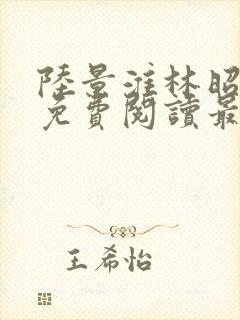 陸景淮林昭
免費閱讀最
王希怡